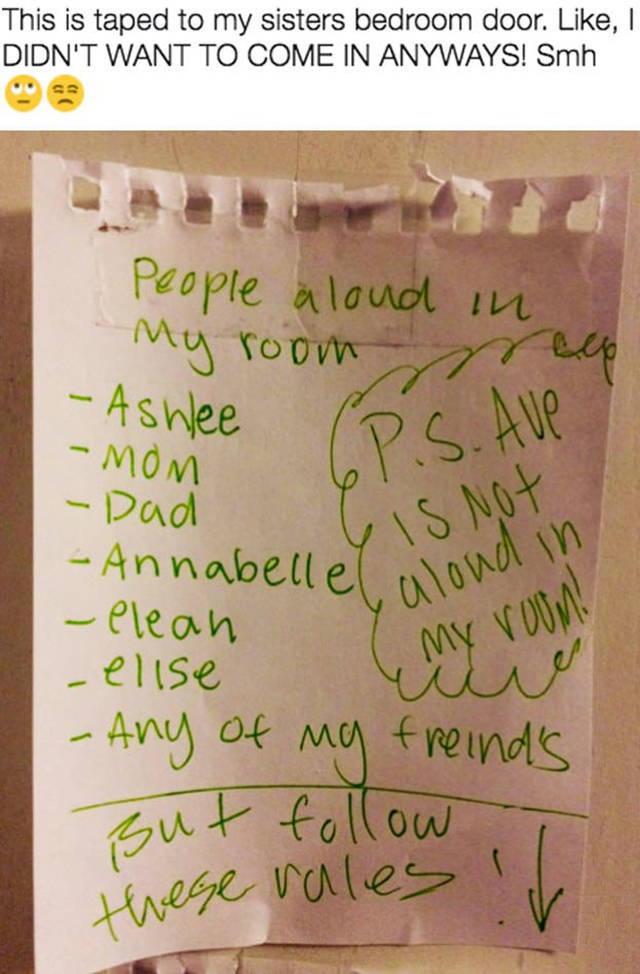 This is taped to my sisters bedroom door. Like, I
DIDN'T WANT TO COME IN ANYWAYS! Smh
🙄😒
People aloud in
My room
- Ashlee
- Mom
- Dad
- Annabelle
- eleah
- elise
- Any of my freinds
P.S. Ave
is Not
aloud in
my room!
But follow
these rules! ↓